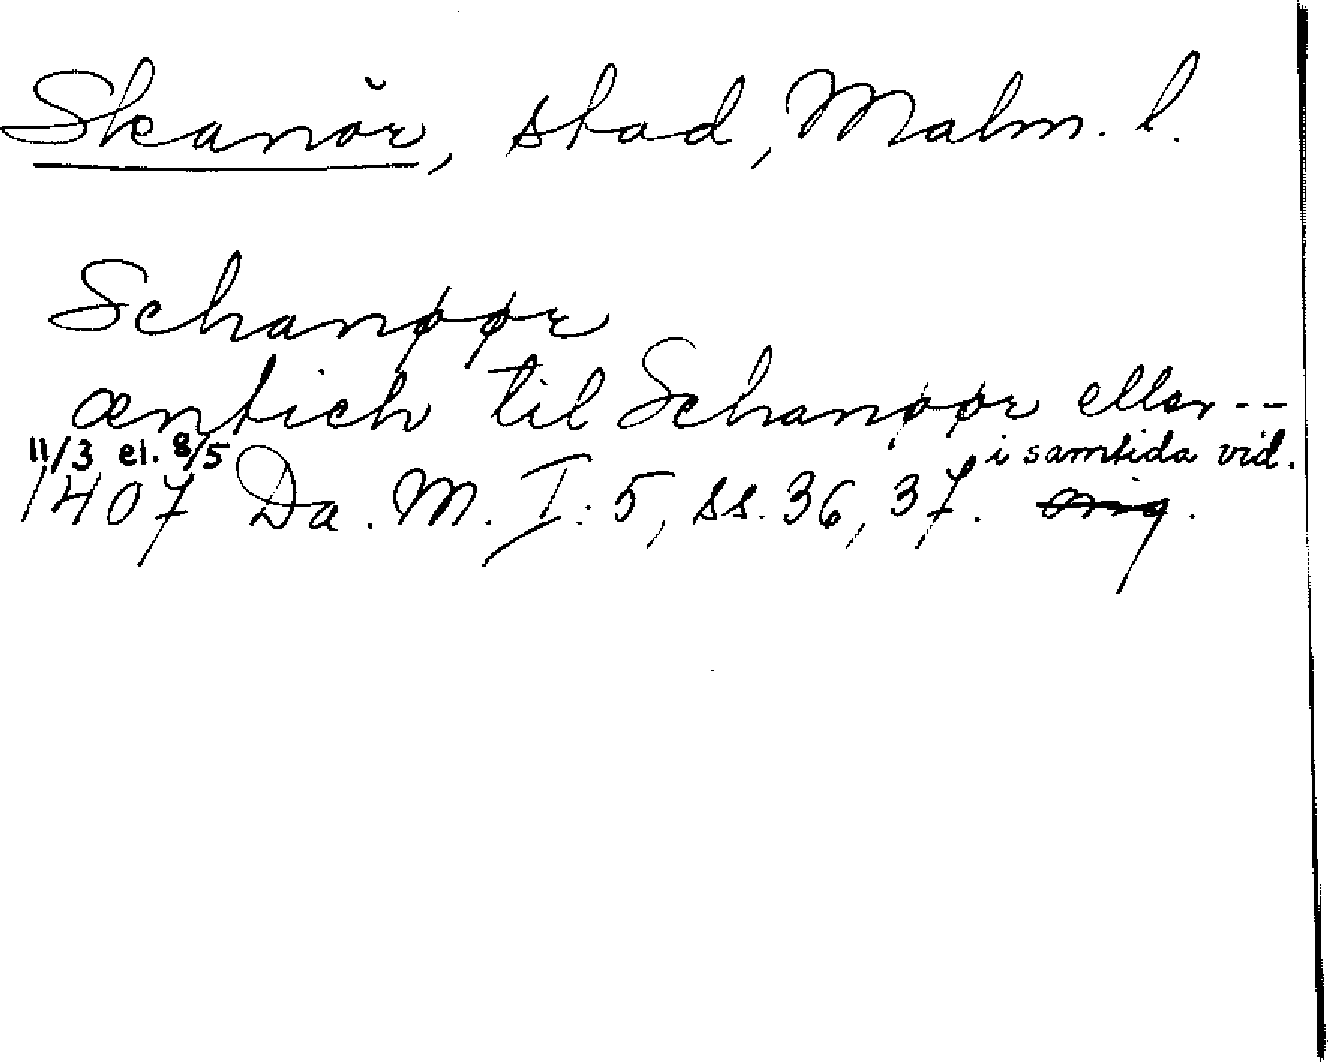 Skanör, stad, Malm. l.
Schanøør
 æntich til Schanøør eller --
11/3 el. 8/5 i samtida vid.
1407 Da. M. I: 5, ss. 36, 37. orig.